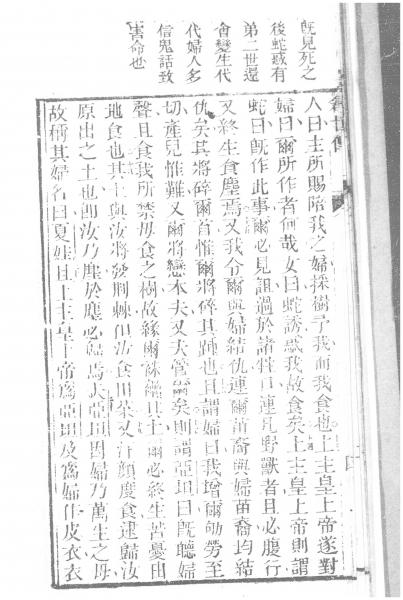 既見死之
後蛇或有
第二世還
會變生代
代婦人多
信鬼話致
害命也
人曰主所賜陪我之婦採樹予我而我食也上主皇上帝遂對
婦曰爾所作者何哉女曰蛇誘惑我故食矣上主皇上帝則謂
蛇曰既作此事爾必見詛過於諸牲口連凡野獸者且必腹行
又終生食塵焉又我令爾與婦結仇連爾苗裔與婦苗裔均結
仇矣其將碎爾首惟爾將碎其踵也且謂婦曰我增爾劬勞至
切產兒惟難又爾將戀本夫又夫管爾矣則謂亞坦曰既聽婦
聲且食我所禁毋食之樹故緣爾 其土爾必終生苦憂由
地食也其土與汝將發荊棘但汝食田菜又汗顏度食逮歸汝
原出之土也即汝乃塵於塵必歸焉夫亞坦因婦乃萬生之母
故稱其婦名曰夏娃且上主皇上帝為亞坦及為婦作皮衣衣